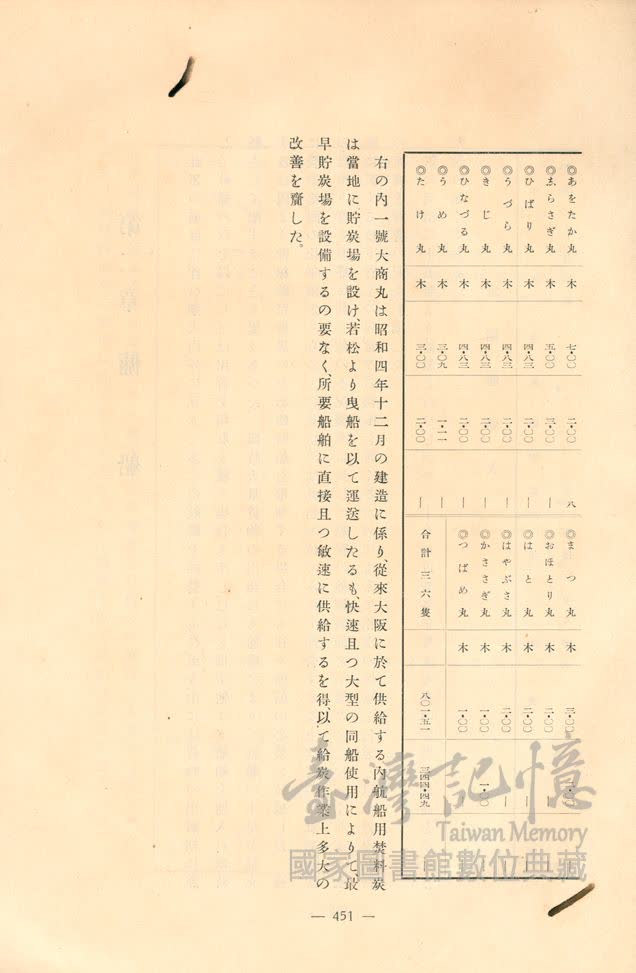 ◎あをたか丸 木 七・〇〇 二・〇〇 八
◎ゑらさぎ丸 木 五・〇〇 三・〇〇 ―
◎ひばり丸 木 四・八三 二・〇〇 ―
◎うづら丸 木 四・八三 二・〇〇 ―
◎きじ丸 木 四・八三 二・〇〇 ―
◎ひなづる丸 木 四・八三 二・〇〇 ―
◎うめ丸 木 三・〇九 一・一一 ―
◎たけ丸 木 三・〇〇 二・〇〇 ―
◎まつ丸 木 三・〇〇
◎おほとり丸 木 二・〇〇 ―
◎はと丸 木 二・〇〇 ―
◎はやぶさ丸 木 二・〇〇 ―
◎かささぎ丸 木 一・〇〇 一・〇〇
◎つばめ丸 木 一・〇〇
合計三六隻 八〇一・五一 三四四・四九
右の内一號大商丸は昭和四年十二月の建造に係り、從來大阪に於て供給する內航船用焚料炭
は當地に貯炭場を設け、若松より曳船を以て運送したるも、快速且つ大型の同船使用によりて、最
早貯炭場を設備するの要なく、所要船舶に直接且つ敏速に供給するを得、以て給炭作業上多大の
改善を齎した。
臺灣記憶
Taiwan Memory
國家圖書館數位典藏
― 451 ―